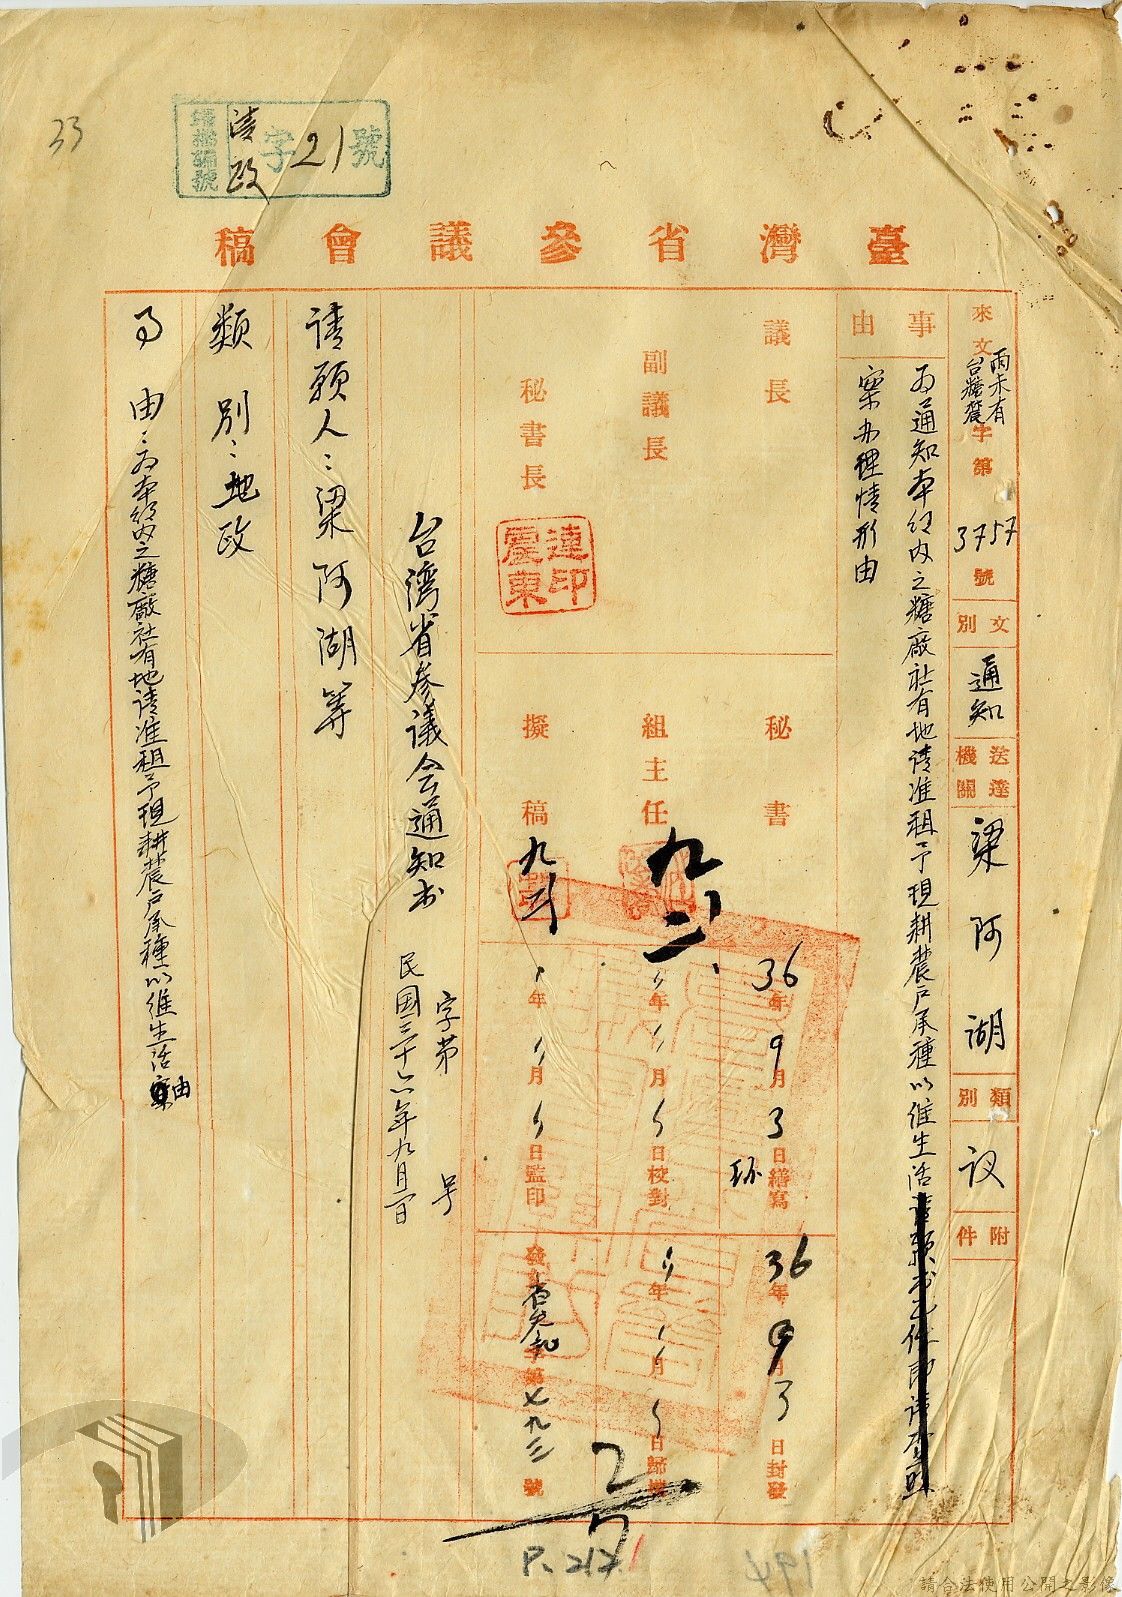 33
請政字21號
臺灣省參議會稿
來文
丙未有
台糖農字第3757號
文別
通知
送達機關
梁阿湖
類別
議
附件
事由
為通知本鄉內之糖廠社有地請准租予現耕農戶承種以維生活
案办理情形由
議長
副議長
秘書長
連震東印
秘書
組主任
九、二、
擬稿
九二
36年9月3日繕寫
年月日校對
年月日監印
36年9月3日封發
年月日歸檔
發文
字第七九三號
台湾省参议会通知书
字第 号
民国三十六年九月 日
请愿人：梁阿湖等
類別：地政
事由：為本鄉内之糖廠社有地请准租予現耕農戶承種以維生活案由
P. 217
491
請合法使用公開之影像